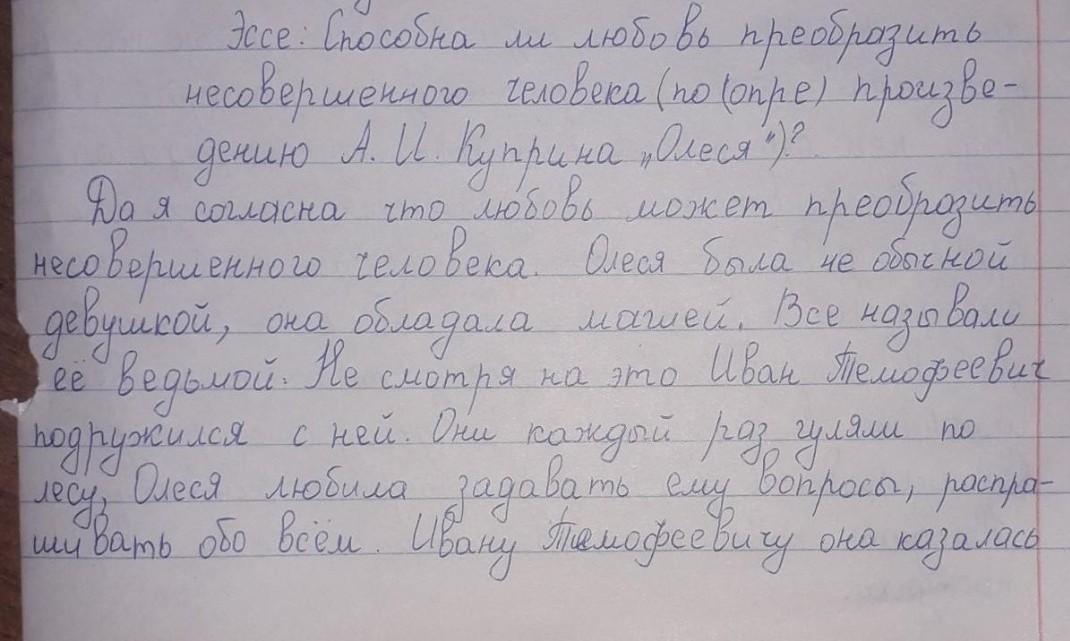 Эссе: Способна ли любовь преобразить
несовершенного человека (по (опре) произве-
дению А. И. Куприна „Олеся")?
Да я согласна что любовь может преобразить
несовершенного человека. Олеся была не обычной
девушкой, она обладала магией. Все называли
её ведьмой. Не смотря на это Иван Темофеевич
подружился с ней. Они каждый раз гуляли по
лесу, Олеся любила задавать ему вопросы, распра-
шивать обо всём. Ивану Темофеевичу она казалась